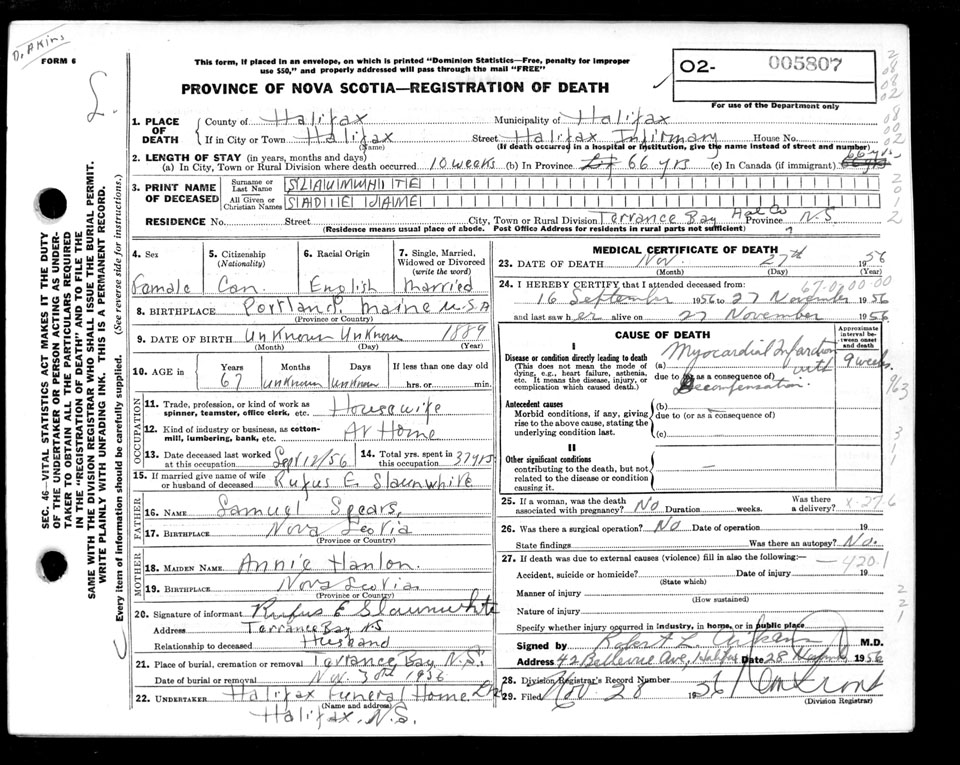 D. Akins
FORM 6
This form, if placed in an envelope, on which is printed "Dominion Statistics—Free, penalty for improper
use $50," and properly addressed will pass through the mail "FREE"
PROVINCE OF NOVA SCOTIA—REGISTRATION OF DEATH
02- 005807
For use of the Department only
SEC. 46—VITAL STATISTICS ACT MAKES IT THE DUTY
OF THE UNDERTAKER OR PERSON ACTING AS UNDER-
TAKER TO OBTAIN ALL THE PARTICULARS REQUIRED
IN THE "REGISTRATION OF DEATH" AND TO FILE THE
SAME WITH THE DIVISION REGISTRAR WHO SHALL ISSUE THE BURIAL PERMIT.
WRITE PLAINLY WITH UNFADING INK. THIS IS A PERMANENT RECORD.
Every item of information should be carefully supplied. (See reverse side for instructions.)
1. PLACE OF DEATH County of Halifax Municipality of Halifax
If in City or Town Halifax Street Halifax Infirmary House No.
(Name) (If death occurred in a hospital or institution, give the name instead of street and number)
2. LENGTH OF STAY (in years, months and days)
(a) In City, Town or Rural Division where death occurred 10 weeks (b) In Province 66 yrs (c) In Canada (if immigrant) 66 yrs
3. PRINT NAME OF DECEASED Surname or Last Name SLAUNWHITE
All Given or Christian Names SADIE JANE
RESIDENCE No. Street City, Town or Rural Division Terrance Bay Hal Co Province N.S.
(Residence means usual place of abode. Post Office Address for residents in rural parts not sufficient)
4. Sex 5. Citizenship (Nationality) 6. Racial Origin 7. Single, Married, Widowed or Divorced (write the word)
Female Can. English Married
8. BIRTHPLACE Portland Maine U.S.A
(Province or Country)
9. DATE OF BIRTH Unknown Unknown 1889
(Month) (Day) (Year)
10. AGE in Years Months Days If less than one day old
67 unknown Unknown hrs. or min.
OCCUPATION
11. Trade, profession, or kind of work as spinner, teamster, office clerk, etc. Housewife
12. Kind of industry or business, as cotton-mill, lumbering, bank, etc. At Home
13. Date deceased last worked at this occupation Sept 12/56 14. Total yrs. spent in this occupation 37 yrs
15. If married give name of wife or husband of deceased Rufus E. Slaunwhite
FATHER
16. NAME Samuel Spears
17. BIRTHPLACE Nova Scotia
(Province or Country)
MOTHER
18. MAIDEN NAME Annie Hanlon
19. BIRTHPLACE Nova Scotia
(Province or Country)
20. Signature of informant Rufus E Slaunwhite
Address Terrance Bay NS
Relationship to deceased Husband
21. Place of burial, cremation or removal Terrance Bay, N.S.
Date of burial or removal Nov. 30th 1956
22. UNDERTAKER Halifax Funeral Home Ltd
(Name and address)
Halifax, N.S.
MEDICAL CERTIFICATE OF DEATH
23. DATE OF DEATH Nov. 27th 1956
(Month) (Day) (Year)
67-00 00-00
24. I HEREBY CERTIFY that I attended deceased from:
16 September 1956 to 27 November 1956
and last saw her alive on 27 November 1956
CAUSE OF DEATH Approximate interval between onset and death
I
Disease or condition directly leading to death
(This does not mean the mode of dying, e.g., heart failure, asthenia, etc. It means the disease, injury, or complication which caused death.)
(a) Myocardial Infarction with 9 weeks
due to (or as a consequence of)
Decompensation
Antecedent causes
Morbid conditions, if any, giving rise to the above cause, stating the underlying condition last.
(b)
due to (or as a consequence of)
(c)
II
Other significant conditions
contributing to the death, but not related to the disease or condition causing it.
25. If a woman, was the death associated with pregnancy? No Duration weeks. Was there a delivery?
26. Was there a surgical operation? No Date of operation 19
State findings Was there an autopsy? No.
27. If death was due to external causes (violence) fill in also the following:—
420.1
Accident, suicide or homicide? Date of injury 19
(State which)
Manner of injury
(How sustained)
Nature of injury
Specify whether injury occurred in industry, in home, or in public place
Signed by Robert L. Aikens M.D.
Address 42 Bellevue Ave, Halifax Date 28 Nov 1956
28. Division Registrar's Record Number
29. Filed Nov 28 1956
(Division Registrar)